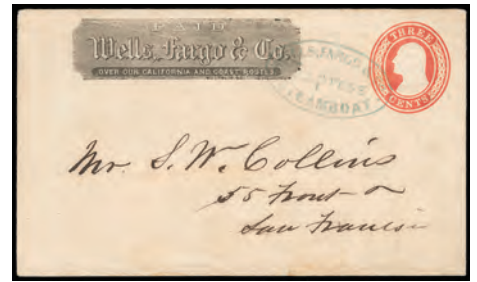 PAID
Wells, Fargo & Co.
OVER OUR CALIFORNIA AND COAST ROUTES
WELLS, FARGO &
EXPRESS
STEAMBOAT
THREE
CENTS
Mr. S. W. Collins
55 Front
San Francis